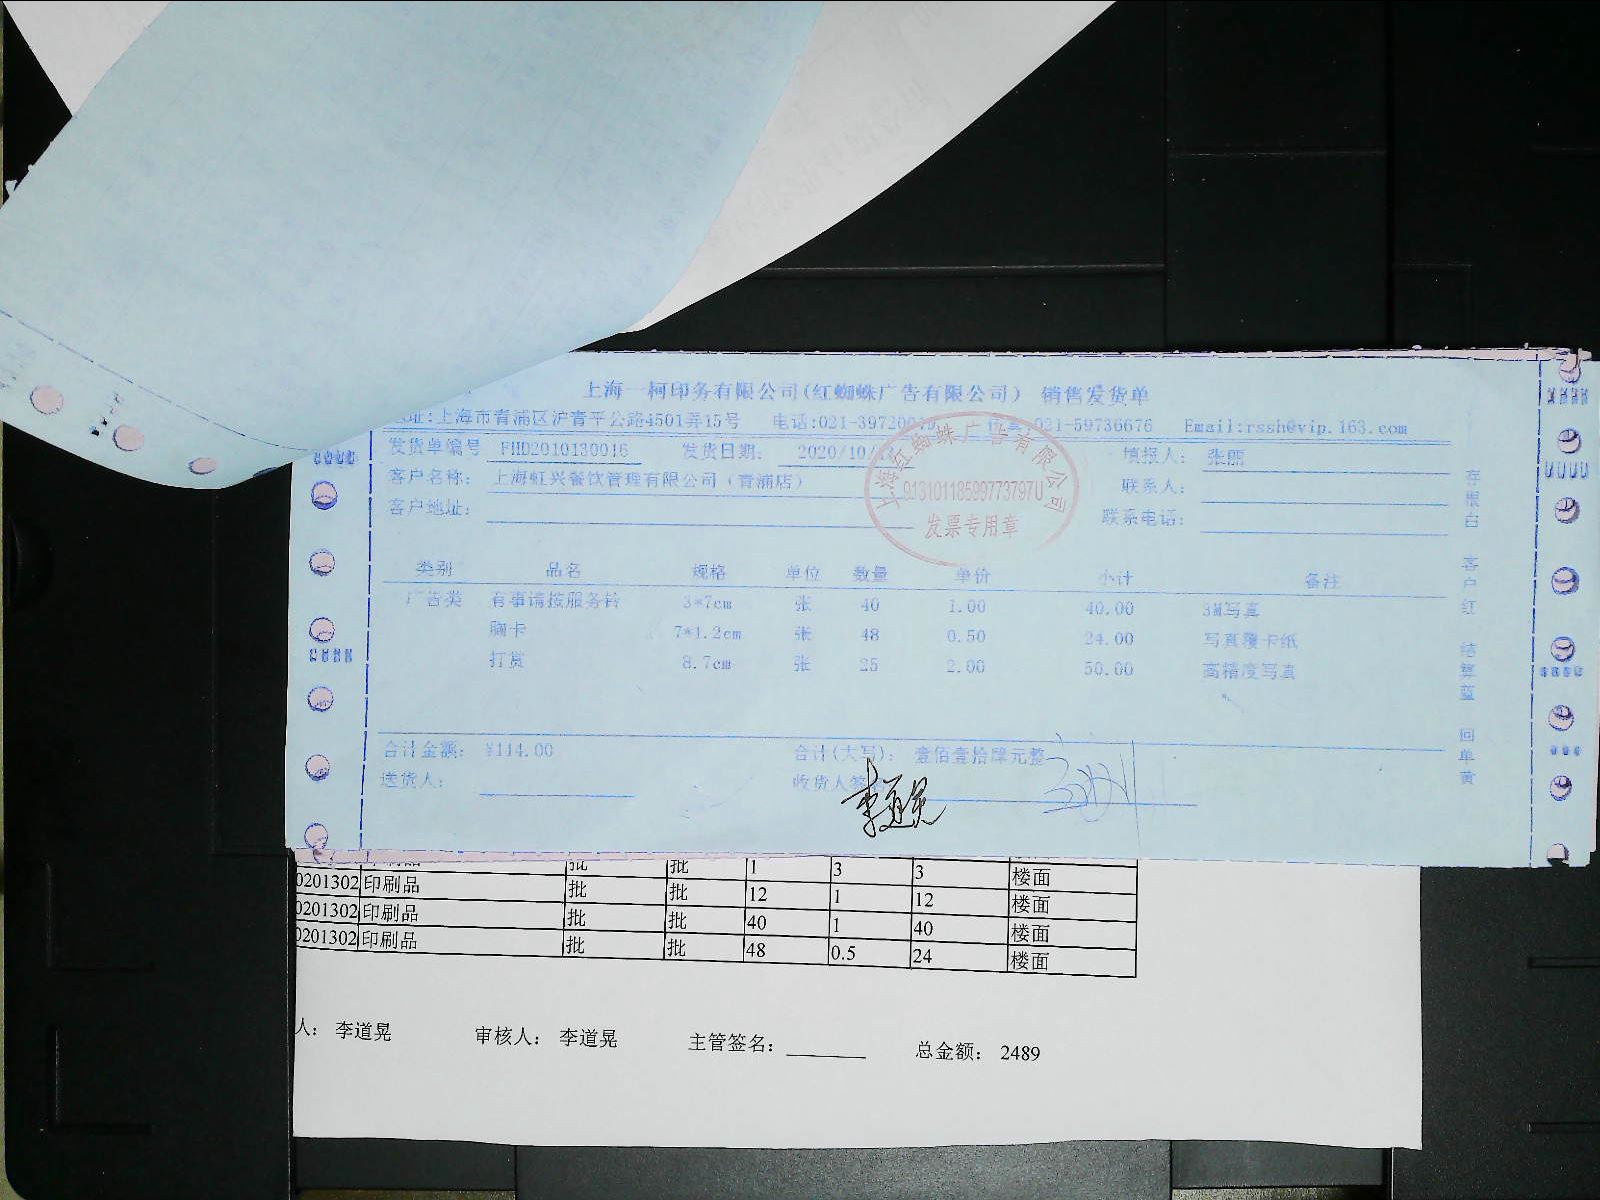 上海一柯印务有限公司(红蜘蛛广告有限公司) 销售发货单
址:上海市青浦区沪青平公路4501弄15号 电话:021-39720 传真:021-59736676 Email:rssh@vip.163.com
发货单编号 FHD2010130016 发货日期: 2020/10/ 填报人: 张丽
客户名称: 上海虹兴餐饮管理有限公司(青浦店) 联系人:
客户地址: 联系电话:
上海红蜘蛛广告有限公司
91310118599773797U
发票专用章
类别 品名 规格 单位 数量 单价 小计 备注
广告类 有事请按服务铃 3*7cm 张 40 1.00 40.00 3M写真
胸卡 7*1.2cm 张 48 0.50 24.00 写真覆卡纸
打赏 8.7cm 张 25 2.00 50.00 高精度写真
合计金额: ¥114.00 合计(大写): 壹佰壹拾肆元整
送货人: 收货人签
李道晃
存根白 客户红 结算蓝 回单黄
批 批 1 3 3 楼面
0201302 印刷品 批 批 12 1 12 楼面
0201302 印刷品 批 批 40 1 40 楼面
0201302 印刷品 批 批 48 0.5 24 楼面
人: 李道晃 审核人: 李道晃 主管签名: 总金额: 2489